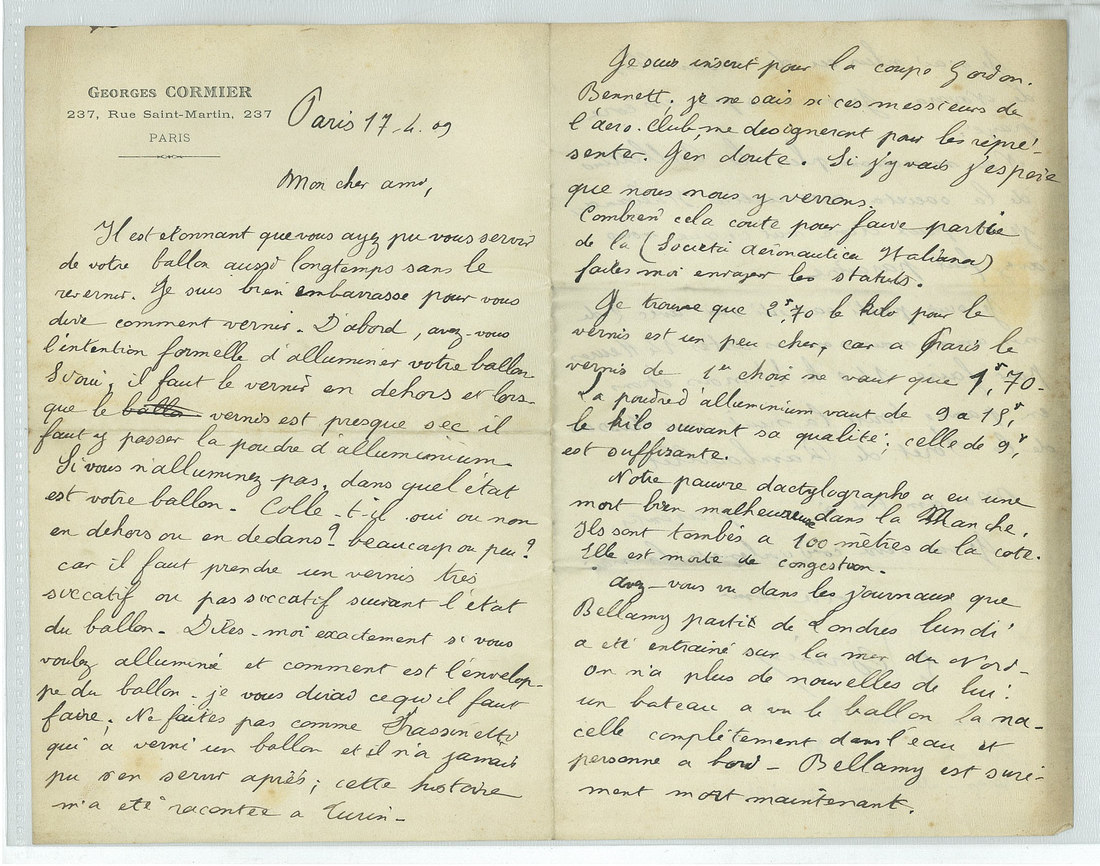 GEORGES CORMIER
237, Rue Saint-Martin, 237
PARIS
Paris 17-4-09
Mon cher ami,
Il est etonnant que vous ayez pu vous servir
de votre ballon aussi longtemps sans le
revernir. Je suis bien embarrasse pour vous
dire comment vernir. D'abord, avez-vous
l'intention formelle d'alluminer votre ballon
Si oui; il faut le vernir en dehors et lors-
que le ballon vernis est presque sec il
faut y passer la poudre d'alluminium.
Si vous n'alluminez pas, dans quel etat
est votre ballon. Colle-t-il oui ou non
en dehors ou en dedans? beaucoup ou peu?
car il faut prendre un vernis tres
siccatif ou pas siccatif suivant l'état
du ballon. Dites-moi exactement si vous
voulez alluminé et comment est l'envelop-
pe du ballon. je vous dirai ce qu'il faut
faire. Ne faites pas comme Frassinetti
qui a verni un ballon et il n'a jamais
pu s'en servir aprés; cette histoire
m'a eté racontée a Turin-
Je suis inscrit pour la coupe Gordon.
Bennett. je ne sais si ces messieurs de
l'aero. Club, me designeront pour les repré-
senter. J'en doute. Si j'y vais j'espere
que nous nous y verrons.
Combien cela coute pour faire partie
de la (Societa Aeronautica Italiana)
faites moi envoyer les statuts.
Je trouve que 2f,70 le kilo pour le
vernis est un peu cher, car a Paris le
vernis de 1er choix ne vaut que 1f,70-
La poudre d'alluminium vaut de 9 a 15f
le kilo suivant sa qualité; celle de 9f
est suffisante.
Notre pauvre dactylographe a eu une
mort bien malheureuse dans la Manche.
Ils sont tombés a 100 mètres de la cote.
Elle est morte de congestion.
avez-vous vu dans les journaux que
Bellamy partit de Londres lundi
a eté entrainé sur la mer du Nord-
on n'a plus de nouvelles de lui!
un bateau a vu le ballon la na-
celle complètement dans l'eau et
personne a bord - Bellamy est sure-
ment mort maintenant.